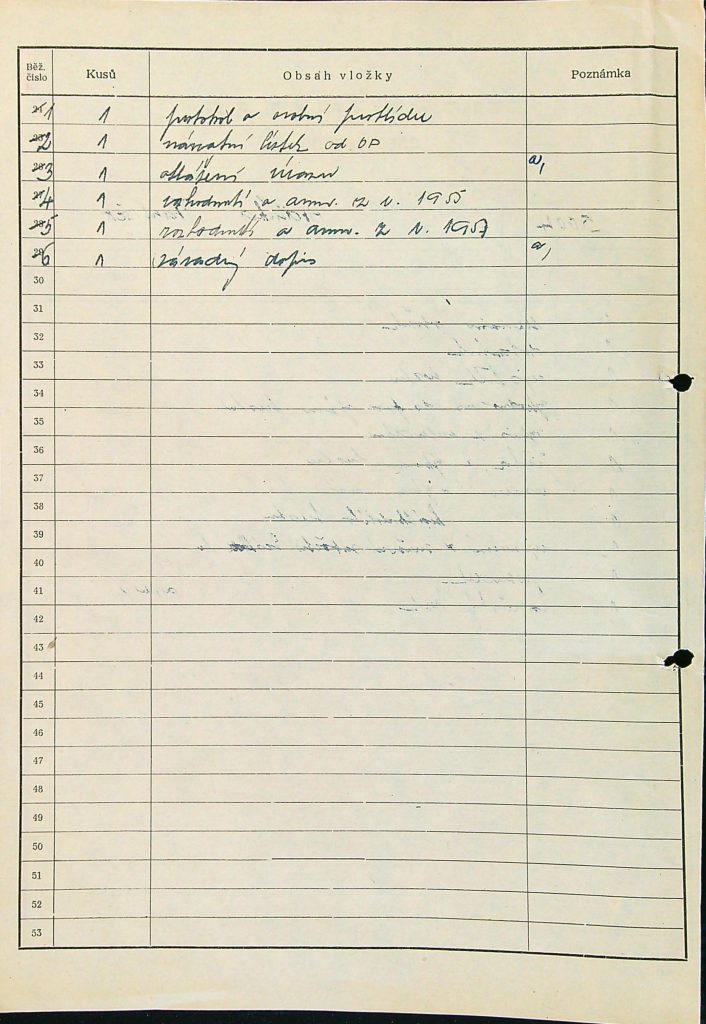 Běž. číslo Kusů Obsah vložky Poznámka
1 1 protokol o osobní prohlídce
2 1 návratní lístek od OP
3 1 a,
4 1 rozhodnutí o amn. z r. 1955
5 1 rozhodnutí o amn. z r. 1957
6 1 závadný dopis a,
30
31
32
33
34
35
36
37
38
39
40
41
42
43
44
45
46
47
48
49
50
51
52
53